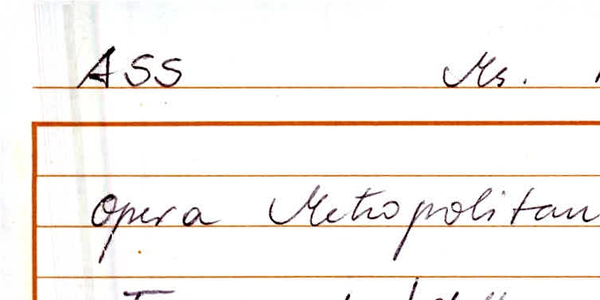 ASS Ms.
Opera Metropolitan